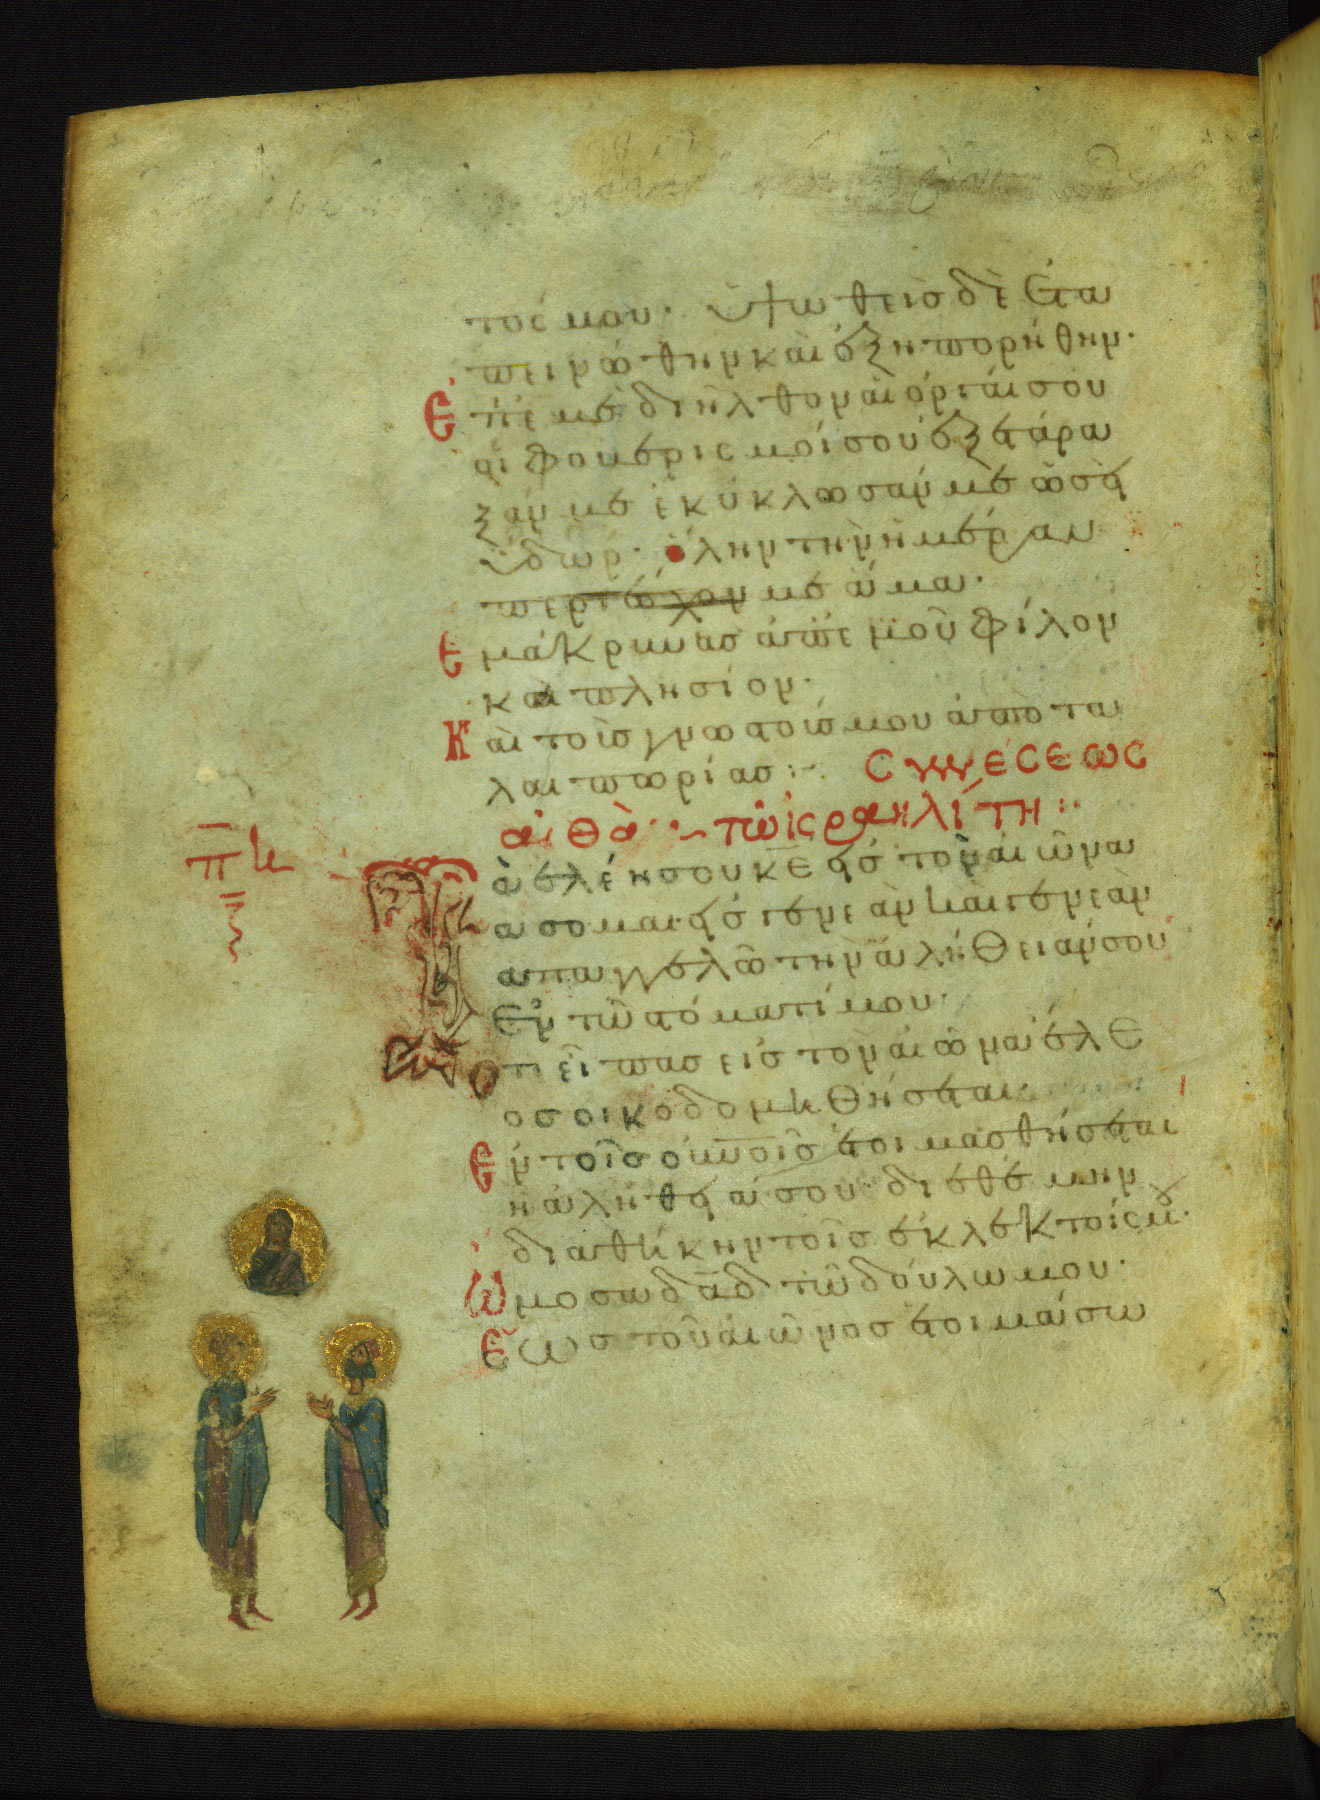 τός μου· ὑψωθεὶς δὲ ἐτα
πεινώθην καὶ ἐξηπορήθην·
Ἐπ' ἐμὲ διῆλθον αἱ ὀργαί σου
οἱ φοβερισμοί σου ἐξετάρα
ξάν με ἐκύκλωσάν με ὡσεὶ
ὕδωρ· ὅλην τὴν ἡμέραν
περιέσχον με ἅμα·
Ἐμάκρυνας ἀπ' ἐμοῦ φίλον
καὶ πλησίον·
Καὶ τοὺς γνωστούς μου ἀπὸ τα
λαιπωρίας :- Συνέσεως
αἰθὰμ τῷ ἰσραηλίτῃ :·
πη
Τὰ ἐλέη σου κε εἰς τὸν αἰῶνα
ᾄσομαι· εἰς γενεὰν καὶ γενεὰν
ἀπαγγελῶ τὴν ἀλήθειάν σου
ἐν τῷ στόματί μου·
Ὅτι εἶπας εἰς τὸν αἰῶνα ἔλε
ος οἰκοδομηθήσεται·
Ἐν τοῖς οὐνοῖς ἑτοιμασθήσεται
ἡ ἀλήθειά σου· διεθέμην
διαθήκην τοῖς ἐκλεκτοῖς μου·
Ὤμοσα δαδ τῷ δούλω μου·
Ἕως τοῦ αἰῶνος ἑτοιμάσω